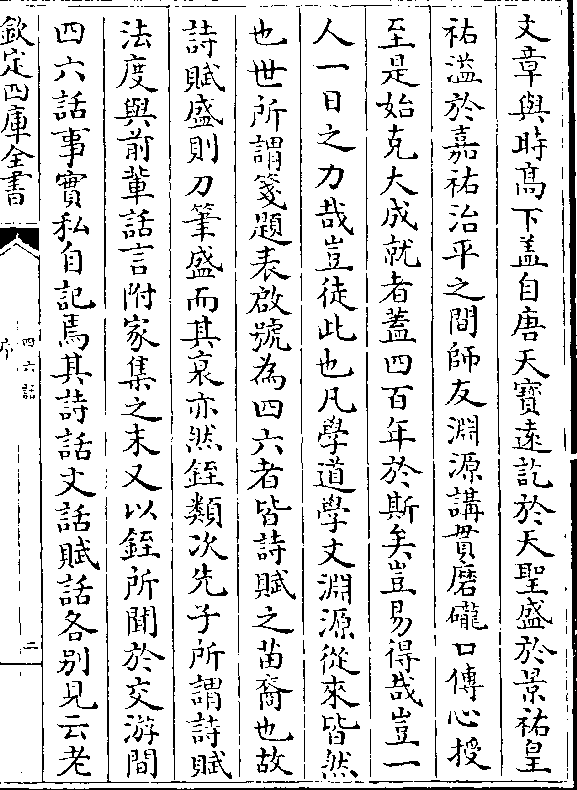 文章與時髙下盖自唐天寳逺訖於天聖盛於景祐皇
祐溢於嘉祐治平之間師友淵源講貫磨礲口傳心授
至是始克大成就者蓋四百年於斯矣豈易得哉豈一
人一日之力哉豈徒此也凡學道學文淵源從來皆然
也世所謂箋題表啟號為四六者皆詩賦之苗裔也故
詩賦盛則刀筆盛而其衰亦然銍類次先子所謂詩賦
法度與前輩話言附家集之末又以銍所聞於交游間
四六話事實私自記焉其詩話文話賦話各别見云老
欽定四庫全書
四六話
序
二